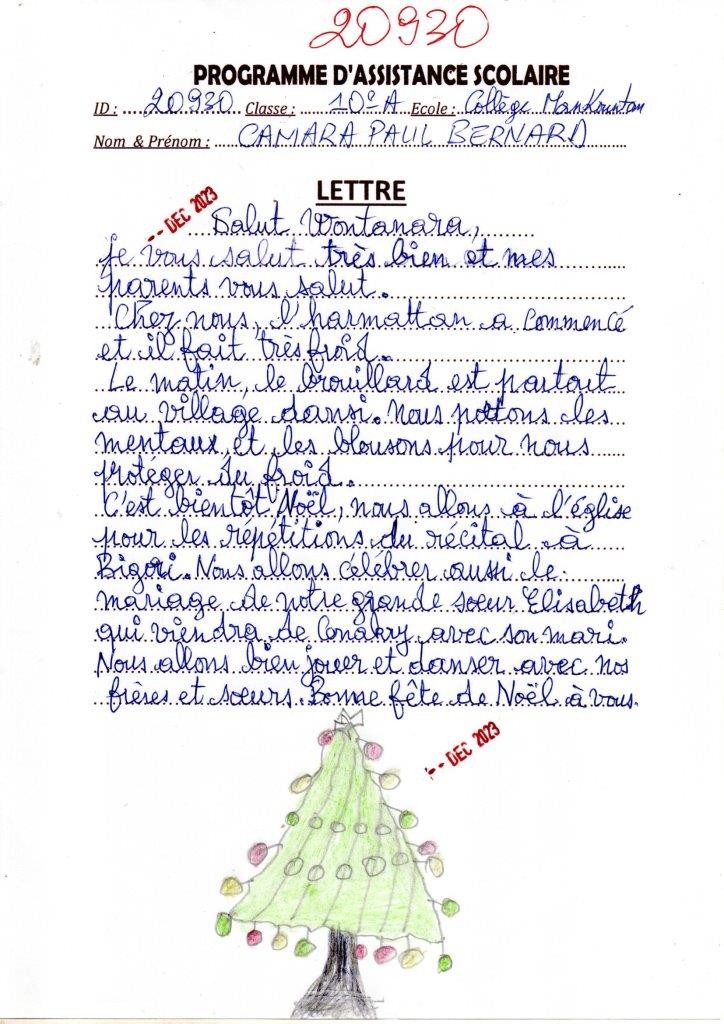 20930
PROGRAMME D'ASSISTANCE SCOLAIRE
ID : 20930 Classe : 10e A Ecole : Collège Mankountan
Nom & Prénom : CAMARA PAUL BERNARD
LETTRE
-- DEC 2023
Salut Wontanara,
je vous salut très bien et mes
parents vous salut.
Chez nous, l'harmattan a commencé
et il fait très froid.
Le matin, le brouillard est partout
au village dansi. Nous portons les
mentaux et les blousons pour nous
protéger du froid.
C'est bientôt Noël, nous allons à l'église
pour les répétitions du récital à
Bigori. Nous allons célébrer aussi le
mariage de notre grande sœur Elisabeth
qui viendra de Conakry avec son mari.
Nous allons bien jouer et danser avec nos
frères et sœurs. Bonne fête de Noël à vous.
-- DEC 2023